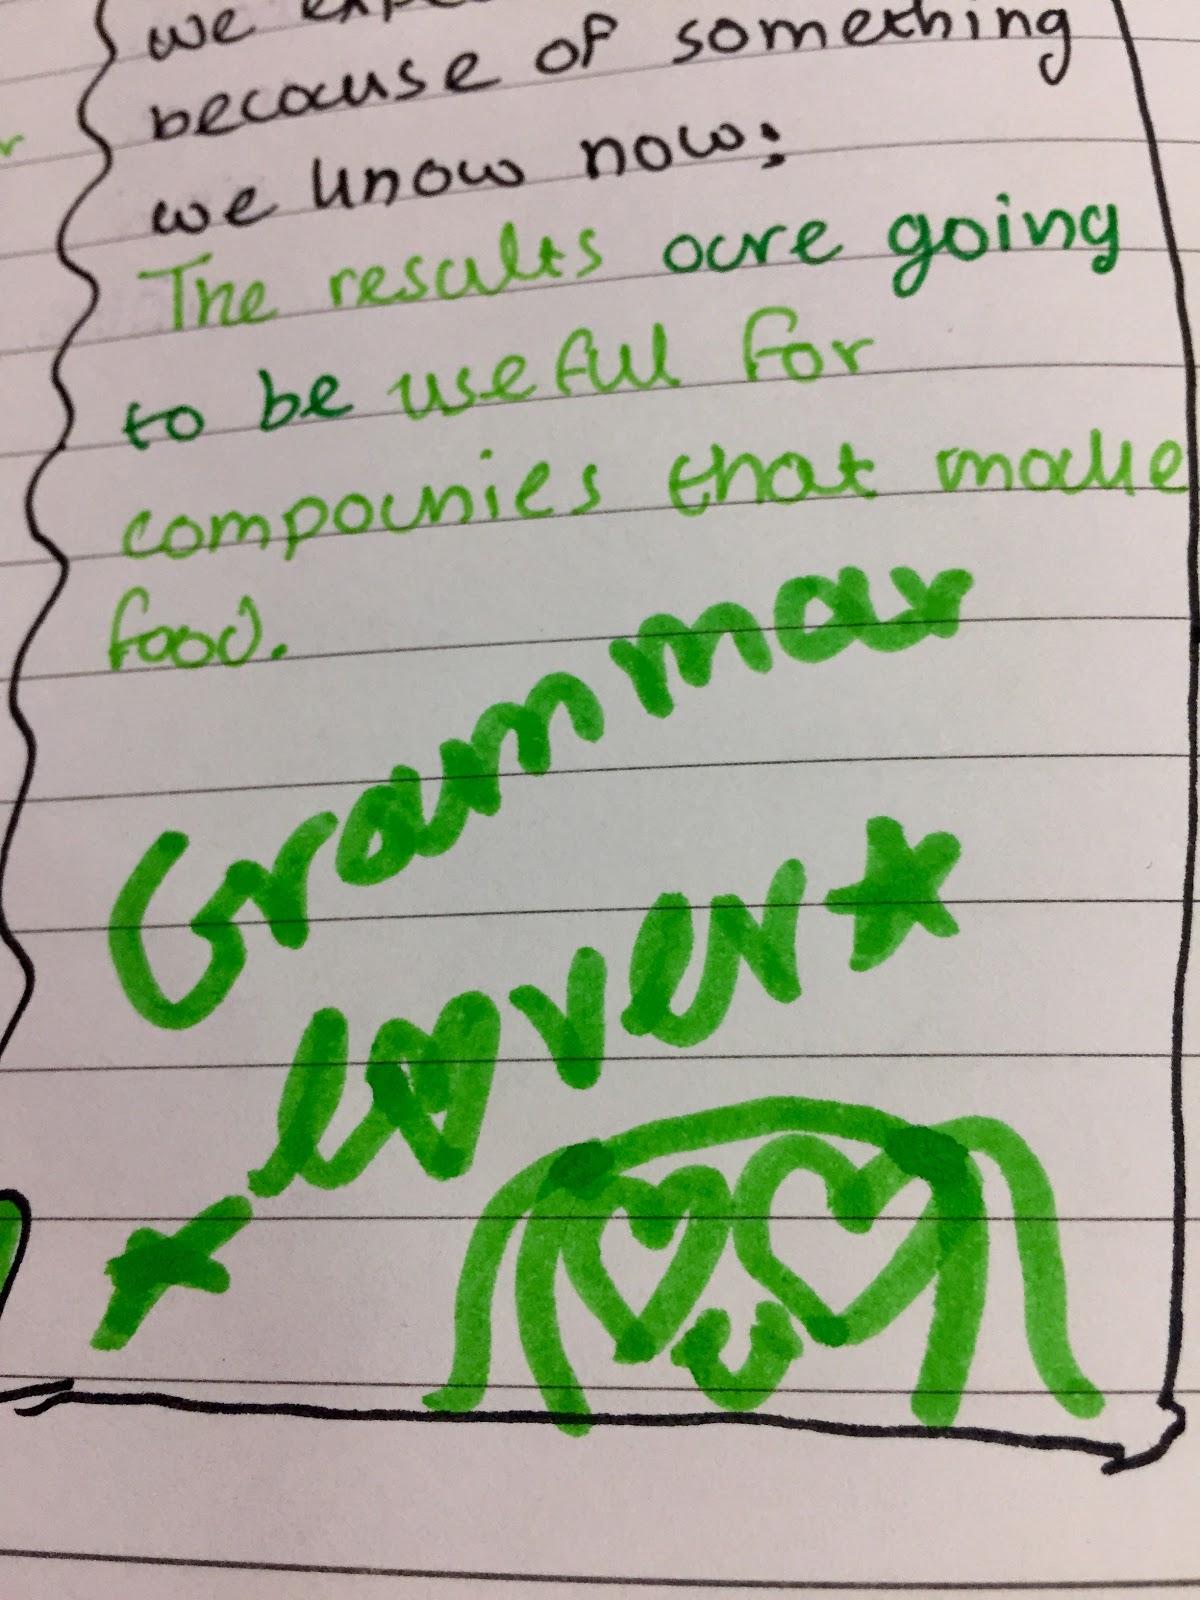 we
because of something
we know now:
The results are going
to be useful for
companies that make
food.
Grammar
lover